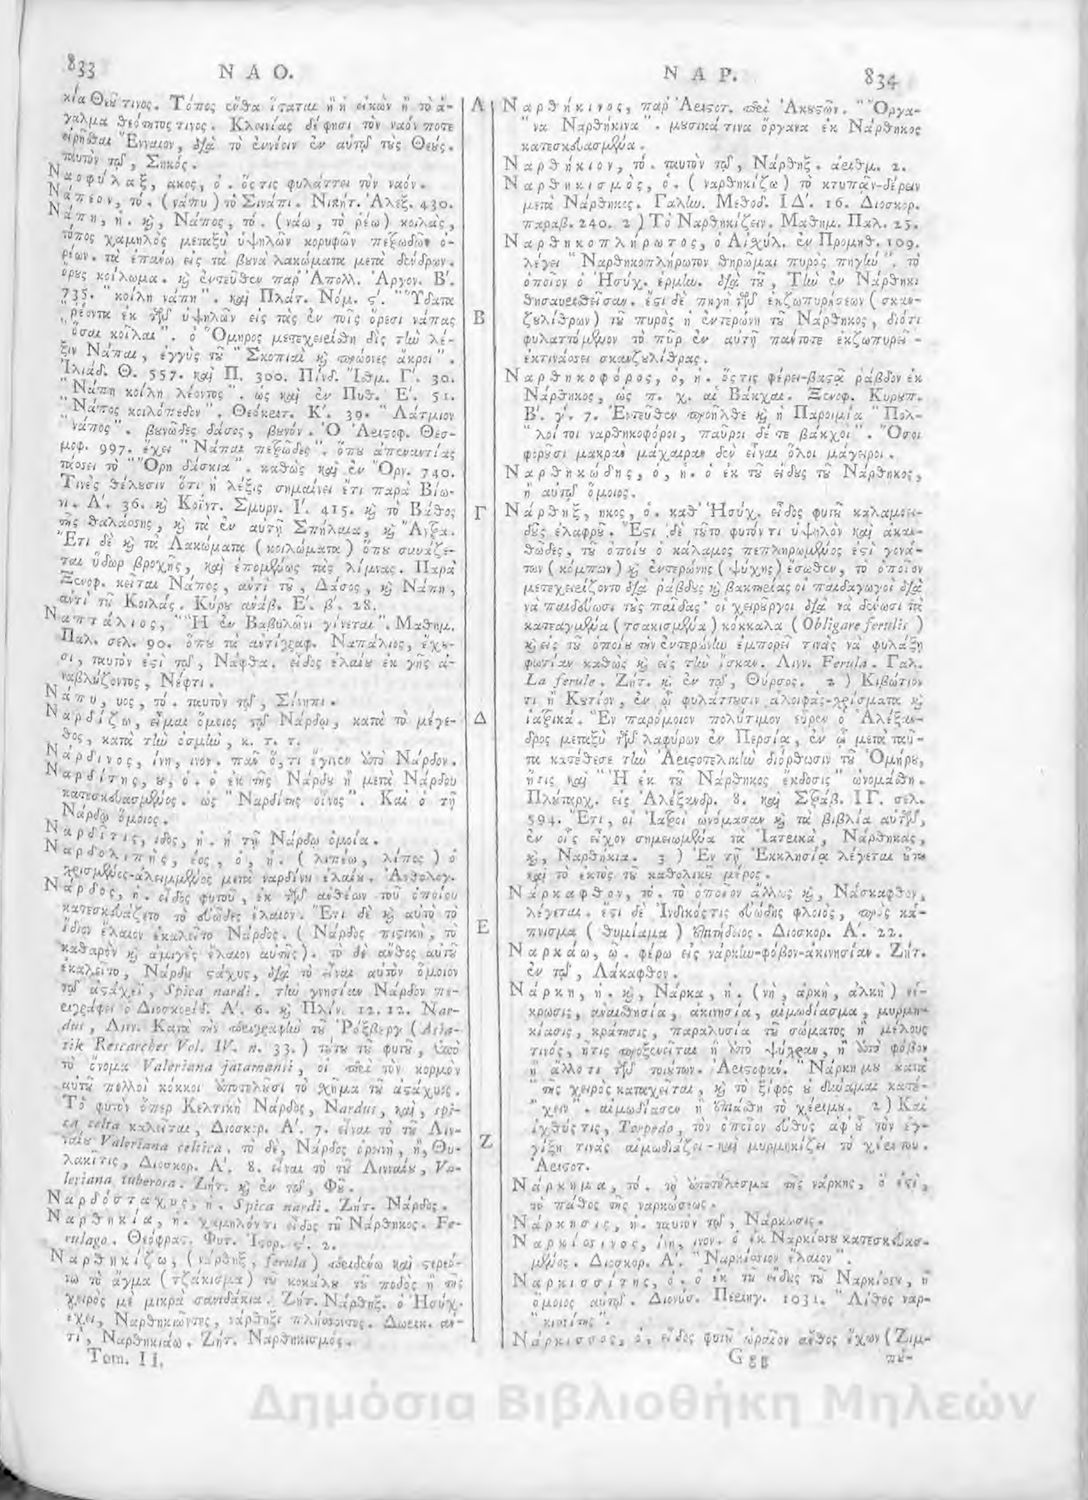 833 ΝΑΟ.
κία Θεῦ τινος. Τόπος ἔνθα ἵσταται ἢ ἡ εἰκὼν ἢ τὸ ἄ-
γαλμα θεότητος τινος. Κλεινίας δέ φησι τὸν ναόν ποτε
εἰρῆσθαι Ἔνναιον, διὰ τὸ ἐνναίειν ἐν αὐτῷ τοὺς Θεούς.
ταυτὸν τῷ, Σηκός.
Ναοφύλαξ, ακος, ὁ. ὅςτις φυλάττει τὸν ναόν.
Νάπειον, τό. (νάπυ) τὸ Σινάπι. Νικήτ. Ἀλεξ. 430.
Νάπη, ἡ. καὶ, Νάπος, τό. (νάω, τὸ ῥέω) κοιλάς,
τόπος χαμηλὸς μεταξὺ ὑψηλῶν κορυφῶν πετρωδῶν ὀ-
ρέων. τὰ ἐπάνω εἰς τὰ βουνὰ λακώματα μετὰ δένδρων.
ὄρους κοίλωμα. καὶ ἐντεῦθεν παρ' Ἀπολλ. Ἀργον. Β΄.
735. "κοίλη νάπη". καὶ Πλάτ. Νόμ. ς΄. "Ὕδατα
"ῥέοντα ἐκ τῶν ὑψηλῶν εἰς τὰς ἐν τοῖς ὄρεσι νάπας
"ὅσαι κοῖλαι". ὁ Ὅμηρος μετεχειρίσθη δὶς τὴν λέ-
ξιν Νάπαι, ἐγγὺς τοῦ "Σκοπιαὶ καὶ πρώονες ἄκροι".
Ἰλιάδ. Θ. 557. καὶ Π. 300. Πίνδ. Ἴσθμ. Γ΄. 30.
"Νάπη κοίλη λέοντος". ὡς καὶ ἐν Πυθ. Ε΄. 51.
"Νάπος κοιλόπεδον". Θεόκριτ. Κ΄. 39. "Λάτμιον
"νάπος". βουνῶδες δάσος, βουνόν. Ὁ Ἀριστοφ. Θεσ-
μοφ. 997. ἔχει "Νάπαι πετρώδες". ὅπου ἀπεναντίας
τάσσει τὸ "Ὄρη δάσκια". καθὼς καὶ ἐν Ὄρν. 740.
Τινὲς θέλουσιν ὅτι ἡ λέξις σημαίνει ἔτι παρὰ Βίω-
νι. Α΄. 36. καὶ Κοΐντ. Σμυρν. Γ΄. 415. καὶ τὸ Βάθος
τῆς θαλάσσης, καὶ τὰ ἐν αὐτῇ Σπήλαια, καὶ Ἄντρα.
Ἔτι δὲ καὶ τὰ Λακώματα (κοιλώματα) ὅπου συνάζε-
ται ὕδωρ βροχῆς, καὶ ἑπομένως τὰς λίμνας. Παρὰ
Ξενοφ. κεῖται Νάπος, ἀντὶ τοῦ, Δάσος, καὶ Νάπη,
ἀντὶ τοῦ Κοιλάς. Κύρου ἀνάβ. Ε΄. β. 18.
Ναπτάλιος, "Ἡ ἐν Βαβυλῶνι γίνεται". Μαθημ.
Παλ. σελ. 90. ὅπου τὰ ἀντίγραφ. Ναπάλιος, ἔχου-
σι, ταυτόν ἐστι τῷ, Νάφθα. εἶδος ἐλαίου ἐκ γῆς ἀ-
ναβλύζοντος, Νέφτι.
Νάπυ, υος, τό. ταυτὸν τῷ, Σίνηπι.
Ναρδίζω, εἶμαι ὅμοιος τῷ Νάρδῳ, κατὰ τὸ μέγε-
θος, κατὰ τὴν ὀσμὴν, κ. τ. τ.
Νάρδινος, ίνη, ινον. πᾶν ὅ,τι ἔγινεν ἀπὸ Νάρδον.
Ναρδίτης, ου, ὁ. ὁ ἐκ τῆς Νάρδου ἢ μετὰ Νάρδου
κατεσκευασμένος. ὡς "Ναρδίτης οἶνος". Καὶ ὁ τῇ
Νάρδῳ ὅμοιος.
Ναρδῖτις, ιδος, ἡ. ἡ τῇ Νάρδῳ ὁμοία.
Ναρδολιπὴς, έος, ὁ, ἡ. (λιπάω, λίπος) ὁ
χρισμένος-ἀλειμμένος μετὰ ναρδίνου ἐλαίου. Ἀνθολογ.
Νάρδος, ἡ. εἶδος φυτοῦ, ἐκ τῶν ἀνθέων τοῦ ὁποίου
κατεσκευάζετο τὸ εὐῶδες ἔλαιον. Ἔτι δὲ καὶ αὐτὸ τὸ
ἴδιον ἔλαιον ἐκαλεῖτο Νάρδος. (Νάρδος πιστικὴ, τὸ
καθαρὸν καὶ ἀμιγὲς ἔλαιον αὐτῆς). τὸ δὲ ἄνθος αὐτοῦ
ἐκαλεῖτο, Νάρδου στάχυς, διὰ τὸ εἶναι αὐτὸν ὅμοιον
τῷ ἀστάχει, Spica nardi. τὴν γνησίαν Νάρδον πε-
ριγράφει ὁ Διοσκορίδ. Α΄. 6. καὶ Πλίν. 12. 12. Nar-
dus, Λινν. Κατὰ τὴν περιγραφὴν τοῦ Ῥόξβεργ (Asia-
tik Researches Vol. IV. n. 33.) τούτου τοῦ φυτοῦ, ὑπὸ
τὸ ὄνομα Valeriana jatamansi, οἱ περὶ τὸν κορμὸν
αὐτοῦ πολλοὶ κόκκοι ἀποτελοῦσι τὸ σχῆμα τοῦ ἀστάχυος.
Τὸ φυτὸν ὅπερ Κελτικὴ Νάρδος, Nardus, καὶ, spi-
ca celta καλεῖται, Διοσκορ. Α΄. 7. εἶναι τὸ τοῦ Λιν-
ναίου Valeriana celtica. τὸ δὲ, Νάρδος ὀρεινὴ, ἢ, Θυ-
λακῖτις, Διοσκορ. Α΄. 8. εἶναι τὸ τοῦ Λινναίου, Va-
leriana tuberosa. Ζήτ. καὶ ἐν τῷ, Φοῦ.
Ναρδόσταχυς, ἡ. Spica nardi. Ζήτ. Νάρδος.
Ναρθηκία, ἡ. χαμηλόν τι εἶδος τοῦ Νάρθηκος. Fe-
rulago. Θεόφραστ. Φυτ. Ἱστορ. ς΄. 2.
Ναρθηκίζω, (νάρθηξ, ferula) περιδένω καὶ στερεό-
νω τὸ ἄγμα (τζάκισμα) τοῦ κοκάλου τοῦ ποδὸς ἢ τῆς
χειρὸς μὲ μικρὰ σανιδάκια. Ζήτ. Νάρθηξ. ὁ Ἡσύχ.
ἔχει, Ναρθηκιῶντες, νάρθηξι πλήσσοντες. Δωρικ. ἀν-
τὶ, Ναρθηκιάω. Ζήτ. Ναρθηκισμός.
Tom. II.
Α
Β
Γ
Δ
Ε
Ζ
ΝΑΡ. 834
Ναρθήκινος, παρ' Ἀριστοτ. περὶ Ἀκουστῶν. "Ὄργα-
"να Ναρθήκινα". μουσικά τινα ὄργανα ἐκ Νάρθηκος
κατεσκευασμένα.
Ναρθήκιον, τό. ταυτὸν τῷ, Νάρθηξ. ἀριθμ. 2.
Ναρθηκισμὸς, ὁ. (ναρθηκίζω) τὸ κτυπᾶν-δέρειν
μετὰ Νάρθηκος. Γαλην. Μεθοδ. ΙΔ΄. 16. Διοσκορ.
παραβ. 240. 2) Τὸ Ναρθηκίζειν. Μαθημ. Παλ. 25.
Ναρθηκοπλήρωτος, ὁ Αἰσχύλ. ἐν Προμηθ. 109.
λέγει "Ναρθηκοπλήρωτον θηρῶμαι πυρὸς πηγὴν". τὸ
ὁποῖον ὁ Ἡσύχ. ἑρμην. διὰ τοῦ, Τὴν ἐν Νάρθηκι
θησαυρισθεῖσαν. ἔστι δὲ πηγὴ τῶν ἐκζωπυρήσεων (σκαν-
ζυλίθρων) τοῦ πυρὸς ἡ ἐντεριώνη τοῦ Νάρθηκος, διότι
φυλαττόμενον τὸ πῦρ ἐν αὐτῇ πάντοτε ἐκζωπυρεῖ-
ἐκτινάσσει σκανζυλίθρας.
Ναρθηκοφόρος, ὁ, ἡ. ὅςτις φέρει-βαστᾷ ῥάβδον ἐκ
Νάρθηκος, ὡς π. χ. αἱ Βάκχαι. Ξενοφ. Κυρουπ.
Β΄. γ΄. 7. Ἐντεῦθεν προῆλθε καὶ ἡ Παροιμία "Πολ-
"λοί τοι ναρθηκοφόροι, παῦροι δέ τε βάκχοι". Ὅσοι
φοροῦσι μακρὰν μάχαιραν δὲν εἶναι ὅλοι μάγειροι.
Ναρθηκώδης, ὁ, ἡ. ὁ ἐκ τοῦ εἴδους τοῦ Νάρθηκος,
ἢ αὐτῷ ὅμοιος.
Νάρθηξ, ηκος, ὁ. καθ' Ἡσύχ. εἶδος φυτοῦ καλαμοει-
δοῦς ἐλαφροῦ. Ἔστι δὲ τοῦτο φυτόν τι ὑψηλὸν καὶ ἀκαν-
θῶδες, τοῦ ὁποίου ὁ κάλαμος πεπληρωμένος ἐστὶ γονά-
των (κόμπων) καὶ ἐντεριώνης (ψύχης) ἔσωθεν, τὸ ὁποῖον
μετεχειρίζοντο διὰ ῥάβδους καὶ βακτηρίας οἱ παιδαγωγοὶ διὰ
νὰ παιδεύωσι τοὺς παῖδας· οἱ χειρουργοὶ διὰ νὰ δένωσι τὰ
κατεαγμένα (τσακισμένα) κόκκαλα (Obligare ferulis)
καὶ εἰς τοῦ ὁποίου τὴν ἐντεριώνην ἐμπορεῖ τινὰς νὰ φυλάξῃ
φωτίαν καθὼς καὶ εἰς τὴν ἴσκαν. Λινν. Ferula. Γαλ.
La ferule. Ζήτ. καὶ ἐν τῷ, Θύρσος. 2) Κιβώτιόν
τι ἢ Κυτίον, ἐν ᾧ φυλάττουσιν ἀλοιφὰς-χρίσματα καὶ
ἰατρικά. Ἓν παρόμοιον πολύτιμον εὗρεν ὁ Ἀλέξαν-
δρος μεταξὺ τῶν λαφύρων ἐν Περσίᾳ, ἐν ᾧ μετὰ ταῦ-
τα κατέθεσε τὴν Ἀριστοτελικὴν διόρθωσιν τοῦ Ὁμήρου,
ἥτις καὶ "Ἡ ἐκ τοῦ Νάρθηκος ἔκδοσις" ὠνομάσθη.
Πλουταρχ. εἰς Ἀλέξανδρ. 8. καὶ Στράβ. ΙΓ. σελ.
594. Ἔτι, οἱ Ἰατροὶ ὠνόμασαν καὶ τὰ βιβλία αὐτῶν,
ἐν οἷς εἶχον σημειωμένα τὰ Ἰατρικὰ, Νάρθηκας,
καὶ, Ναρθήκια. 3) Ἐν τῇ Ἐκκλησίᾳ λέγεται οὕτω
καὶ τὸ ἐκτὸς τοῦ καθολικοῦ μέρος.
Νάρκαφθον, τό. τὸ ὁποῖον ἄλλως καὶ, Νάσκαφθον,
λέγεται. ἔστι δὲ Ἰνδικός τις εὐώδης φλοιὸς, πρὸς κά-
πνισμα (θυμίαμα) ἐπιτήδειος. Διοσκορ. Α΄. 22.
Ναρκάω, ῶ. φέρω εἰς νάρκην-φόβον-ἀκινησίαν. Ζήτ.
ἐν τῷ, Λάκαφθον.
Νάρκη, ἡ. καὶ, Νάρκα, ἡ. (νὴ, ἀρκὴ, ἀλκὴ) νέ-
κρωσις, ἀναισθησία, ἀκινησία, αἱμωδίασμα, μυρμη-
κίασις, κράτησις, παραλυσία τοῦ σώματος ἢ μέλους
τινὸς, ἥτις προξενεῖται ἢ ἀπὸ ψύχραν, ἢ ἀπὸ φόβον
ἢ ἄλλο τι τῶν τοιούτων. Ἀριστοφαν. "Νάρκη μου κατὰ
"τῆς χειρὸς καταχεῖται, καὶ τὸ ξίφος οὐ δύναμαι κατέ-
"χειν". αἱμωδίασεν ἢ ἐπιάσθη τὸ χέρι μου. 2) Καὶ
ἰχθύς τις, Torpedo, τὸν ὁποῖον εὐθὺς ἀφ' οὗ τὸν ἐγ-
γίξῃ τινὰς αἱμωδιάζει-καὶ μυρμηκίζει τὸ χέρι του.
Ἀριστοτ.
Νάρκημα, τό. τὸ ἀποτέλεσμα τῆς νάρκης, ὅ ἐστι,
τὸ πάθος τῆς ναρκώσεως.
Νάρκησις, ἡ. ταυτὸν τῷ, Νάρκωσις.
Ναρκίσσινος, ίνη, ινον. ὁ ἐκ Ναρκίσσου κατεσκευασ-
μένος. Διοσκορ. Α΄. "Ναρκίσσινον ἔλαιον".
Ναρκισσίτης, ὁ. ὁ ἐκ τοῦ εἴδους τοῦ Ναρκίσσου, ἢ
ὅμοιος αὐτῷ. Διονύσ. Περιηγ. 1031. "Λίθος ναρ-
"κισσίτης".
Νάρκισσος, ὁ, εἶδος φυτοῦ ὡραῖον ἄνθος ἔχων (Ζιμ-
Ggg πε-
Δημόσια Βιβλιοθήκη Μηλεών